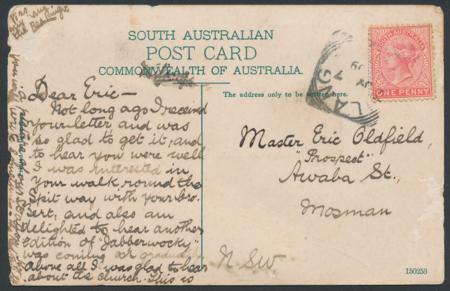 SOUTH AUSTRALIAN
POST CARD
COMMONWEALTH OF AUSTRALIA.
The address only to be written here.
SOUTH AUSTRALIA
ONE PENNY
Dear Eric—
Not long ago I received
your letter and was
so glad to get it, and
to hear you were well
I was interested in
your walk round the
Spit way with your bro.
Bert, and also am
delighted to hear another
edition of "Jabberwocky"
was coming or
above all I was glad to hear
about the church. This is
Master Eric Oldfield,
"Prospect"
Awaba St.,
Mosman
N.S.W
150253